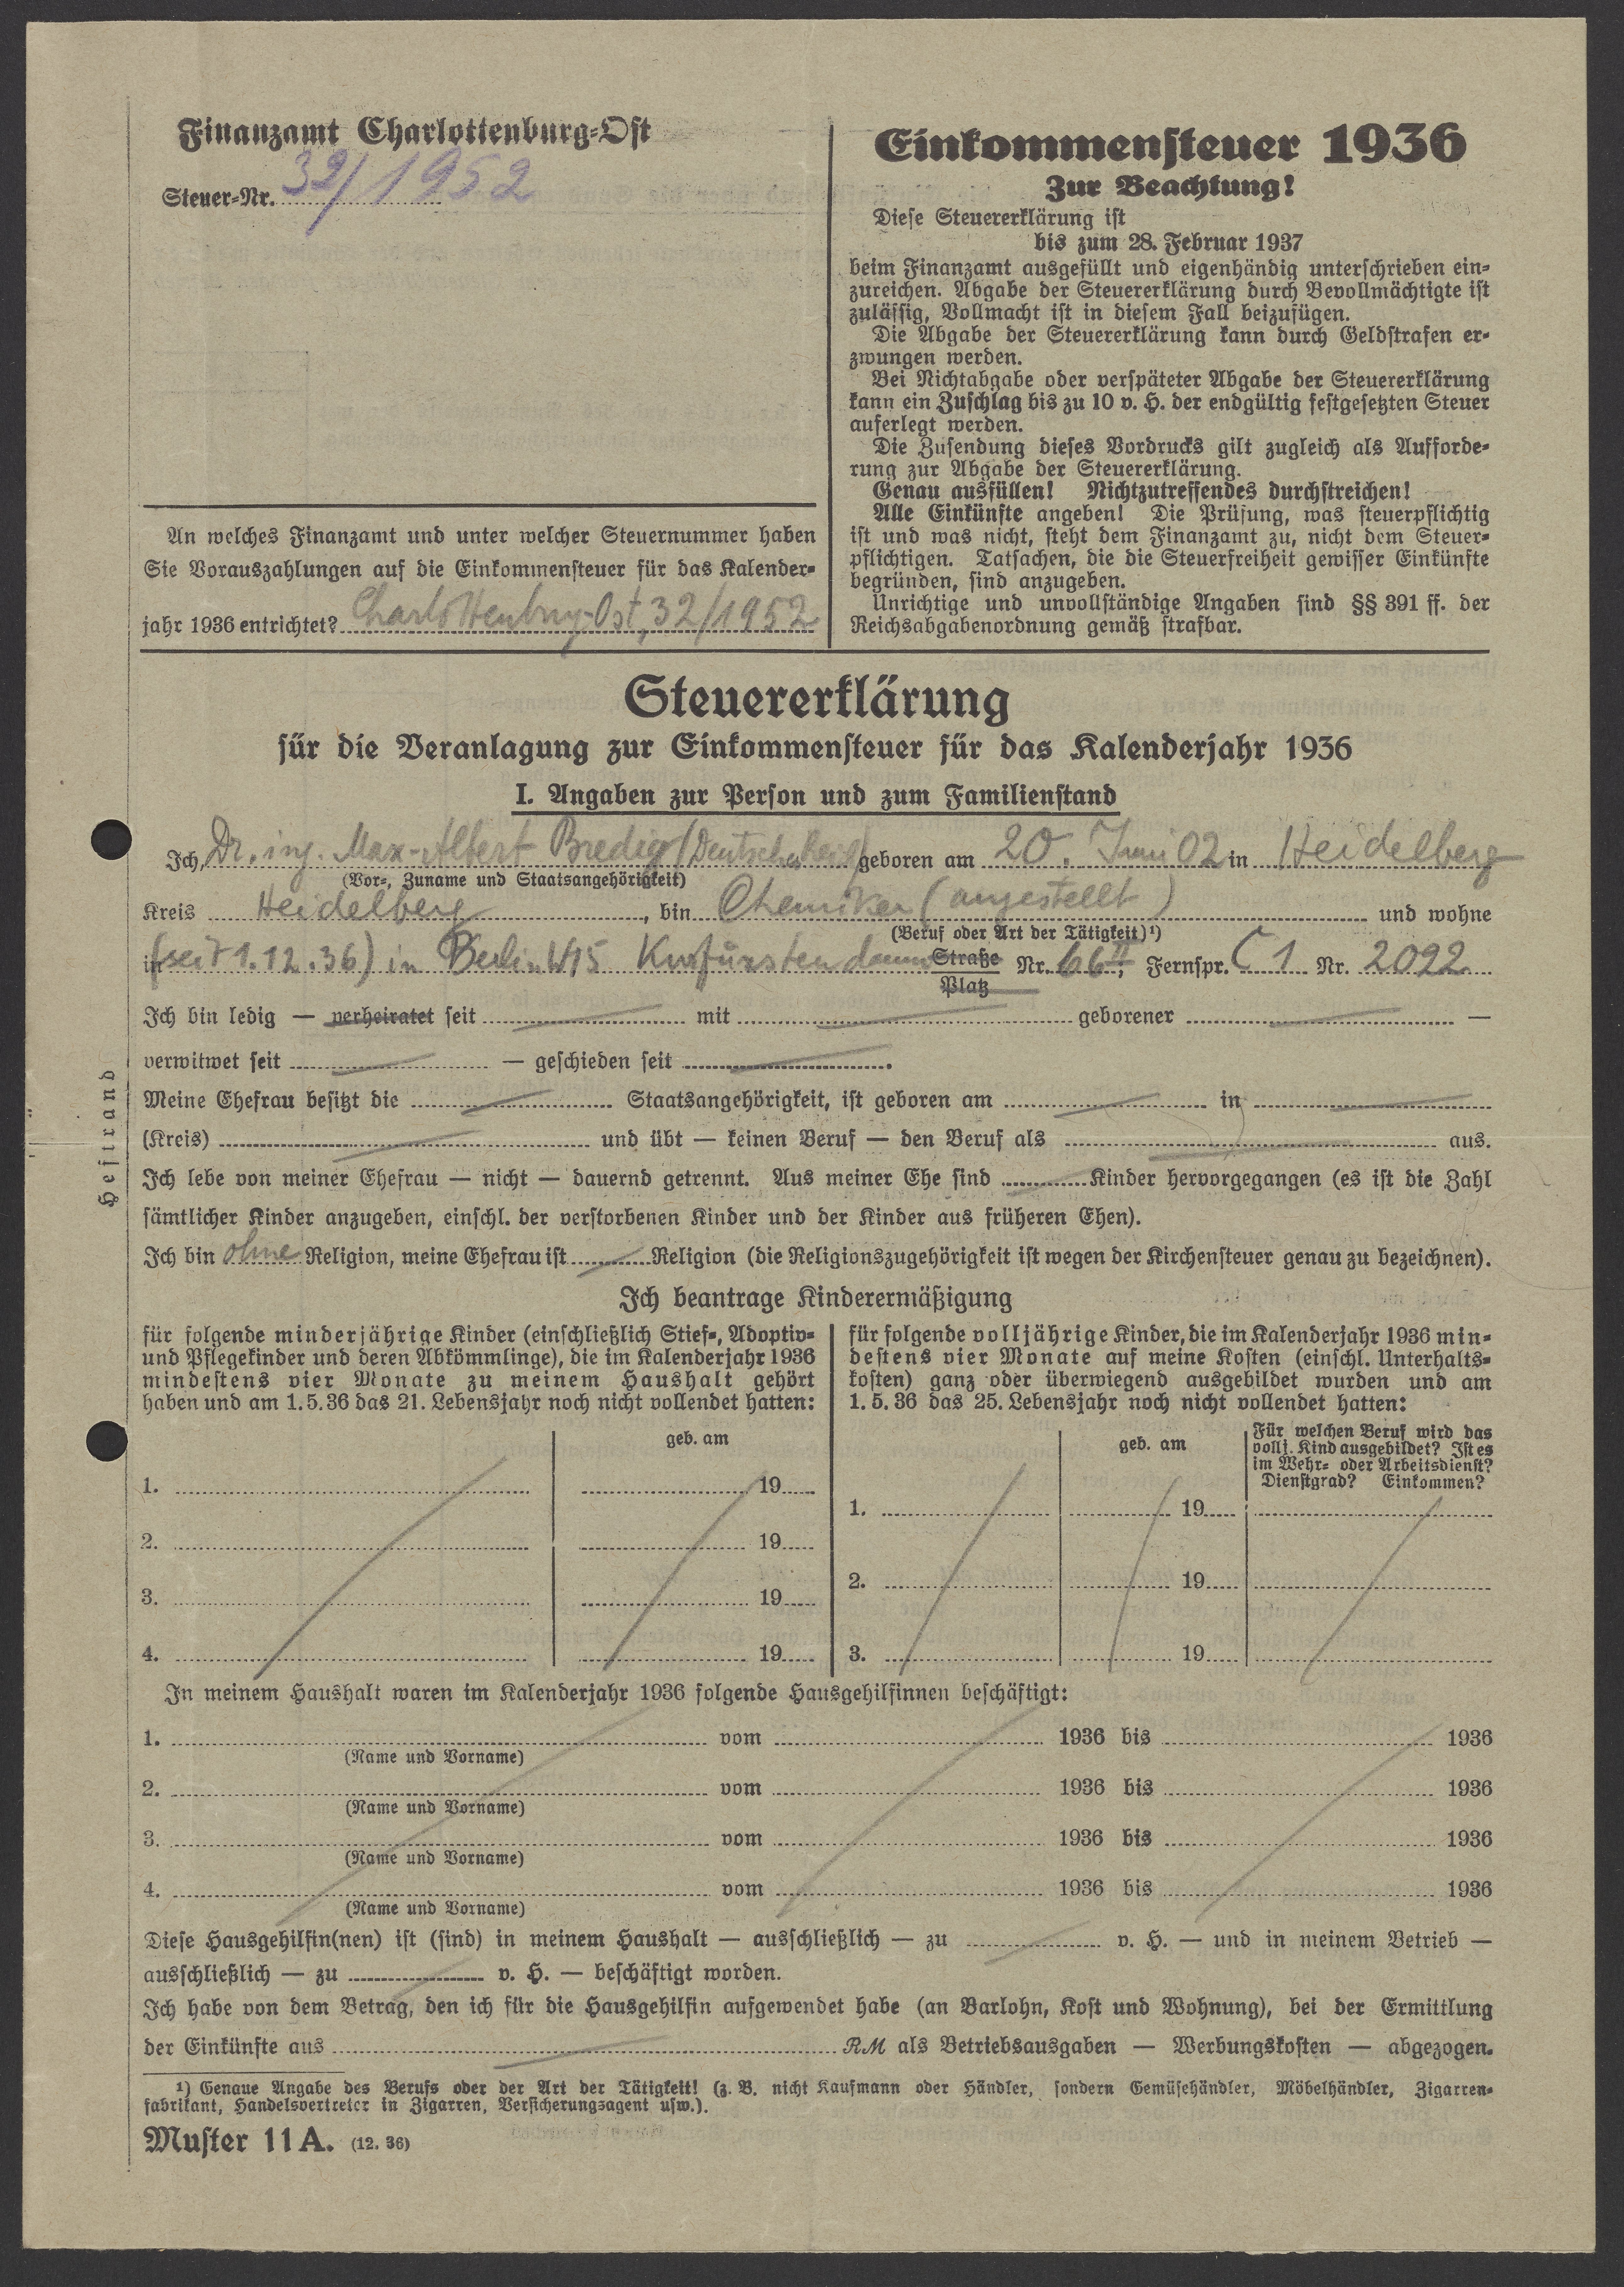 Finanzamt Charlottenburg-Ost
Steuer-Nr. 32/1952
An welches Finanzamt und unter welcher Steuernummer haben
Sie Vorauszahlungen auf die Einkommensteuer für das Kalender-
jahr 1936 entrichtet? Charlottenburg-Ost, 32/1952
Einkommensteuer 1936
Zur Beachtung!
Diese Steuererklärung ist
bis zum 28. Februar 1937
beim Finanzamt ausgefüllt und eigenhändig unterschrieben ein-
zureichen. Abgabe der Steuererklärung durch Bevollmächtigte ist
zulässig, Vollmacht ist in diesem Fall beizufügen.
Die Abgabe der Steuererklärung kann durch Geldstrafen er-
zwungen werden.
Bei Nichtabgabe oder verspäteter Abgabe der Steuererklärung
kann ein Zuschlag bis zu 10 v. H. der endgültig festgesetzten Steuer
auferlegt werden.
Die Zusendung dieses Vordrucks gilt zugleich als Aufforde-
rung zur Abgabe der Steuererklärung.
Genau ausfüllen! Nichtzutreffendes durchstreichen!
Alle Einkünfte angeben! Die Prüfung, was steuerpflichtig
ist und was nicht, steht dem Finanzamt zu, nicht dem Steuer-
pflichtigen. Tatsachen, die die Steuerfreiheit gewisser Einkünfte
begründen, sind anzugeben.
Unrichtige und unvollständige Angaben sind §§ 391 ff. der
Reichsabgabenordnung gemäß strafbar.
Steuererklärung
für die Veranlagung zur Einkommensteuer für das Kalenderjahr 1936
I. Angaben zur Person und zum Familienstand
Ich, Dr. ing. Max-Albert Bredig geboren am 20. Juni 02 in Heidelberg
(Vor-, Zuname und Staatsangehörigkeit)
Kreis Heidelberg, bin Chemiker (angestellt) und wohne
(Beruf oder Art der Tätigkeit)¹)
in (seit 1.12.36) in Berlin W15 Kurfürstendamm Straße Nr. 66 II, Fernspr. C 1 Nr. 2092
Platz
Ich bin ledig — verheiratet seit mit geborener —
verwitwet seit — geschieden seit .
Meine Ehefrau besitzt die Staatsangehörigkeit, ist geboren am in
(Kreis) und übt — keinen Beruf — den Beruf als aus.
Ich lebe von meiner Ehefrau — nicht — dauernd getrennt. Aus meiner Ehe sind Kinder hervorgegangen (es ist die Zahl
sämtlicher Kinder anzugeben, einschl. der verstorbenen Kinder und der Kinder aus früheren Ehen).
Ich bin ohne Religion, meine Ehefrau ist Religion (die Religionszugehörigkeit ist wegen der Kirchensteuer genau zu bezeichnen).
Heftrand
Ich beantrage Kinderermäßigung
für folgende minderjährige Kinder (einschließlich Stief-, Adoptiv-
und Pflegekinder und deren Abkömmlinge), die im Kalenderjahr 1936
mindestens vier Monate zu meinem Haushalt gehört
haben und am 1. 5. 36 das 21. Lebensjahr noch nicht vollendet hatten:
geb. am
1. 19
2. 19
3. 19
4. 19
für folgende volljährige Kinder, die im Kalenderjahr 1936 min-
destens vier Monate auf meine Kosten (einschl. Unterhalts-
kosten) ganz oder überwiegend ausgebildet wurden und am
1. 5. 36 das 25. Lebensjahr noch nicht vollendet hatten:
geb. am
Für welchen Beruf wird das
vollj. Kind ausgebildet? Ist es
im Wehr- oder Arbeitsdienst?
Dienstgrad? Einkommen?
1. 19
2. 19
3. 19
In meinem Haushalt waren im Kalenderjahr 1936 folgende Hausgehilfinnen beschäftigt:
1. vom 1936 bis 1936
(Name und Vorname)
2. vom 1936 bis 1936
(Name und Vorname)
3. vom 1936 bis 1936
(Name und Vorname)
4. vom 1936 bis 1936
(Name und Vorname)
Diese Hausgehilfin(nen) ist (sind) in meinem Haushalt — ausschließlich — zu v. H. — und in meinem Betrieb —
ausschließlich — zu v. H. — beschäftigt worden.
Ich habe von dem Betrag, den ich für die Hausgehilfin aufgewendet habe (an Barlohn, Kost und Wohnung), bei der Ermittlung
der Einkünfte aus RM als Betriebsausgaben — Werbungskosten — abgezogen.
¹) Genaue Angabe des Berufs oder der Art der Tätigkeit! (z. B. nicht Kaufmann oder Händler, sondern Gemüsehändler, Möbelhändler, Zigarren-
fabrikant, Handelsvertreter in Zigarren, Versicherungsagent usw.).
Muster 11 A. (12. 36)